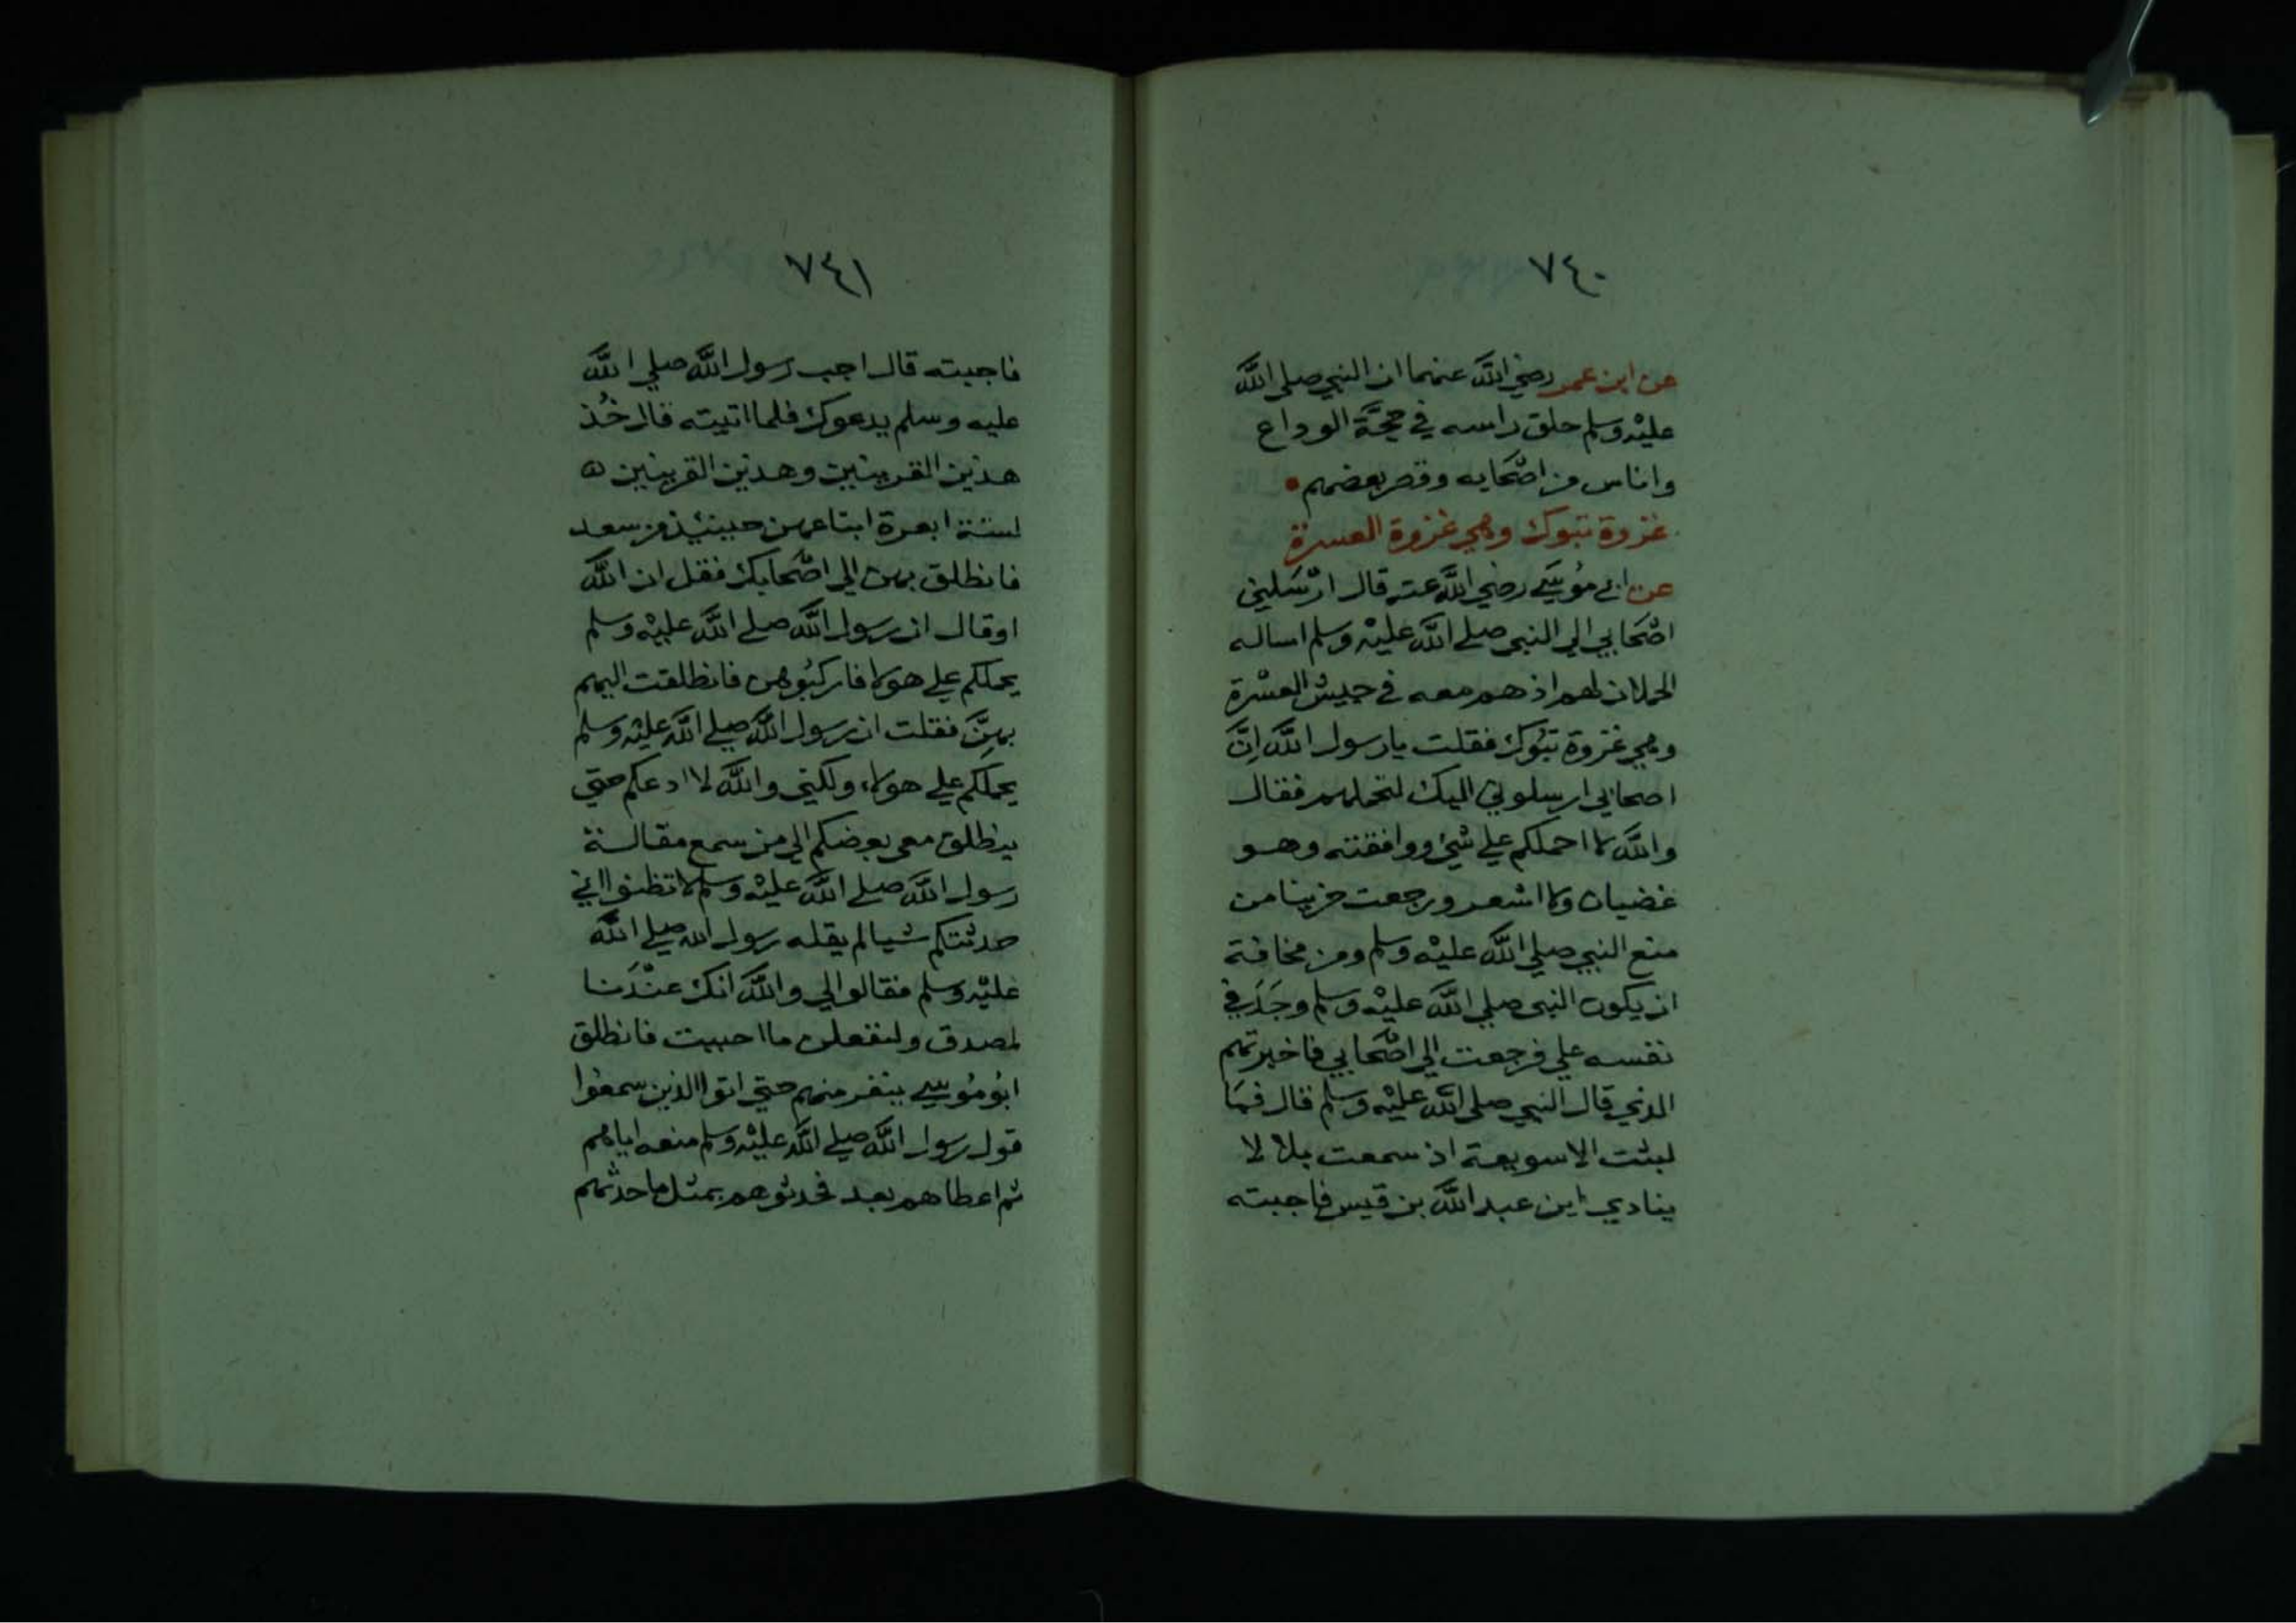 ٧٤٠
عن ابن عمر رضي الله عنهما ان النبي صلى الله
عليْه وسلم حلق راسه في حجَّة الوداع
واناس من اصْحَابه وقصر بعضهم
غزوة تبوك وهي غزوة العسرة
عن ابي مُوسَي رضي الله عنه قال ارْسَلني
اصْحَابي الي النبي صلي الله عليْه وسلم اساله
الحملان لهم اذ هم معه في جيش العسْرة
وهي غزوة تبُوك فقلت يا رسول الله اِنَّ
اصحابي ارسلوني اليك لتحملهم فقال
والله لا احملكم علي شيْ ووافقته وهو
غضبان ولا اشعر ورجعت حزينا من
منع النبي صلي الله عليْه وسلم ومن مخافة
ان يكون النبي صلي الله عليْه وسلم وجَدَ في
نفسه علي فرجعت الي اصْحَابي فاخبرتهم
الذي قال النبي صلى الله عليْه وسلم قال فمَا
لبثت الا سويعة اذ سمعت بلالا
ينادي اين عبد الله بن قيس فاجبته
٧٤١
فاجبته قال اجب رسول الله صلي الله
عليه وسلم يدعوك فلما اتيته قال خُذ
هذين القرينين وهذين القرينين
لستة ابعرة ابتاعهن حينئذ من سعد
فانطلق بهن الي اصْحَابك فقل ان الله
او قال ان رسول الله صلي الله عليْه وسلم
يحملكم علي هولا فاركبُوهن فانطلقت اليهم
بهِنَّ فقلت ان رسول الله صلي الله عليْه وسلم
يحملكم علي هولاء ولكني والله لا ادعكم حتي
ينطلق معي بعضكم الي من سمع مقالة
رسول الله صلي الله عليْه وسلم لا تظنوا اني
حدثتكم شيا لم يقله رسول الله صلي الله
عليْه وسلم فقالوا لي والله انك عنْدَنا
لمصدق ولنفعلن ما احببت فانطلق
ابُو مُوسي بنفر منهم حتي اتوا الذين سمعُوا
قول رسول الله صلي الله عليْه وسلم منعه اياهم
ثم اعطاهم بعد فحدثوهم بمثل ما حدثهم